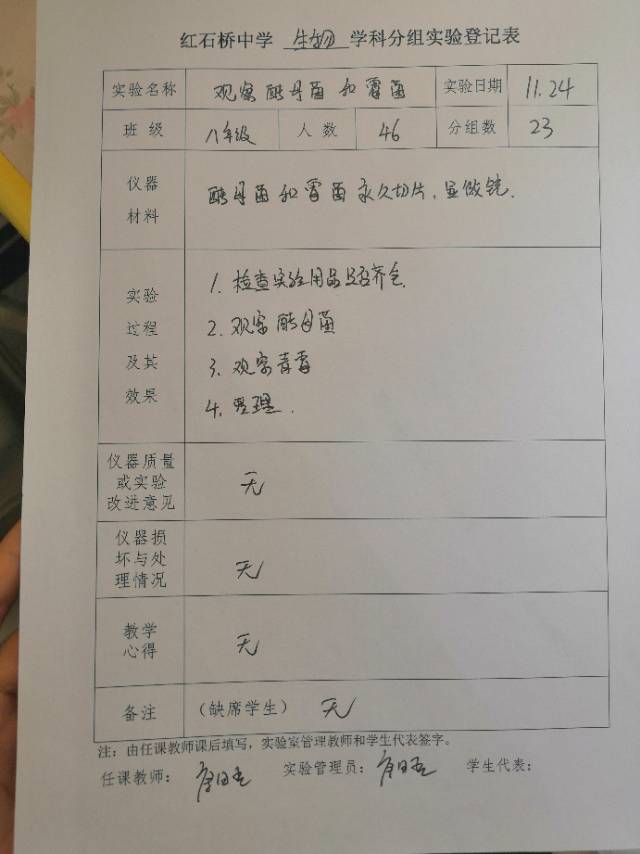 红石桥中学 生物 学科分组实验登记表
实验名称 观察酵母菌和霉菌 实验日期 11.24
班级 八年级 人数 46 分组数 23
仪器
材料
酵母菌和霉菌永久切片.显微镜.
实验
过程
及其
效果
1. 检查实验用品是否齐全.
2. 观察酵母菌
3. 观察青霉
4. 整理.
仪器质量
或实验
改进意见
无
仪器损
坏与处
理情况
无
教学
心得
无
备注 (缺席学生) 无
注:由任课教师课后填写,实验室管理教师和学生代表签字。
任课教师: 实验管理员: 学生代表: